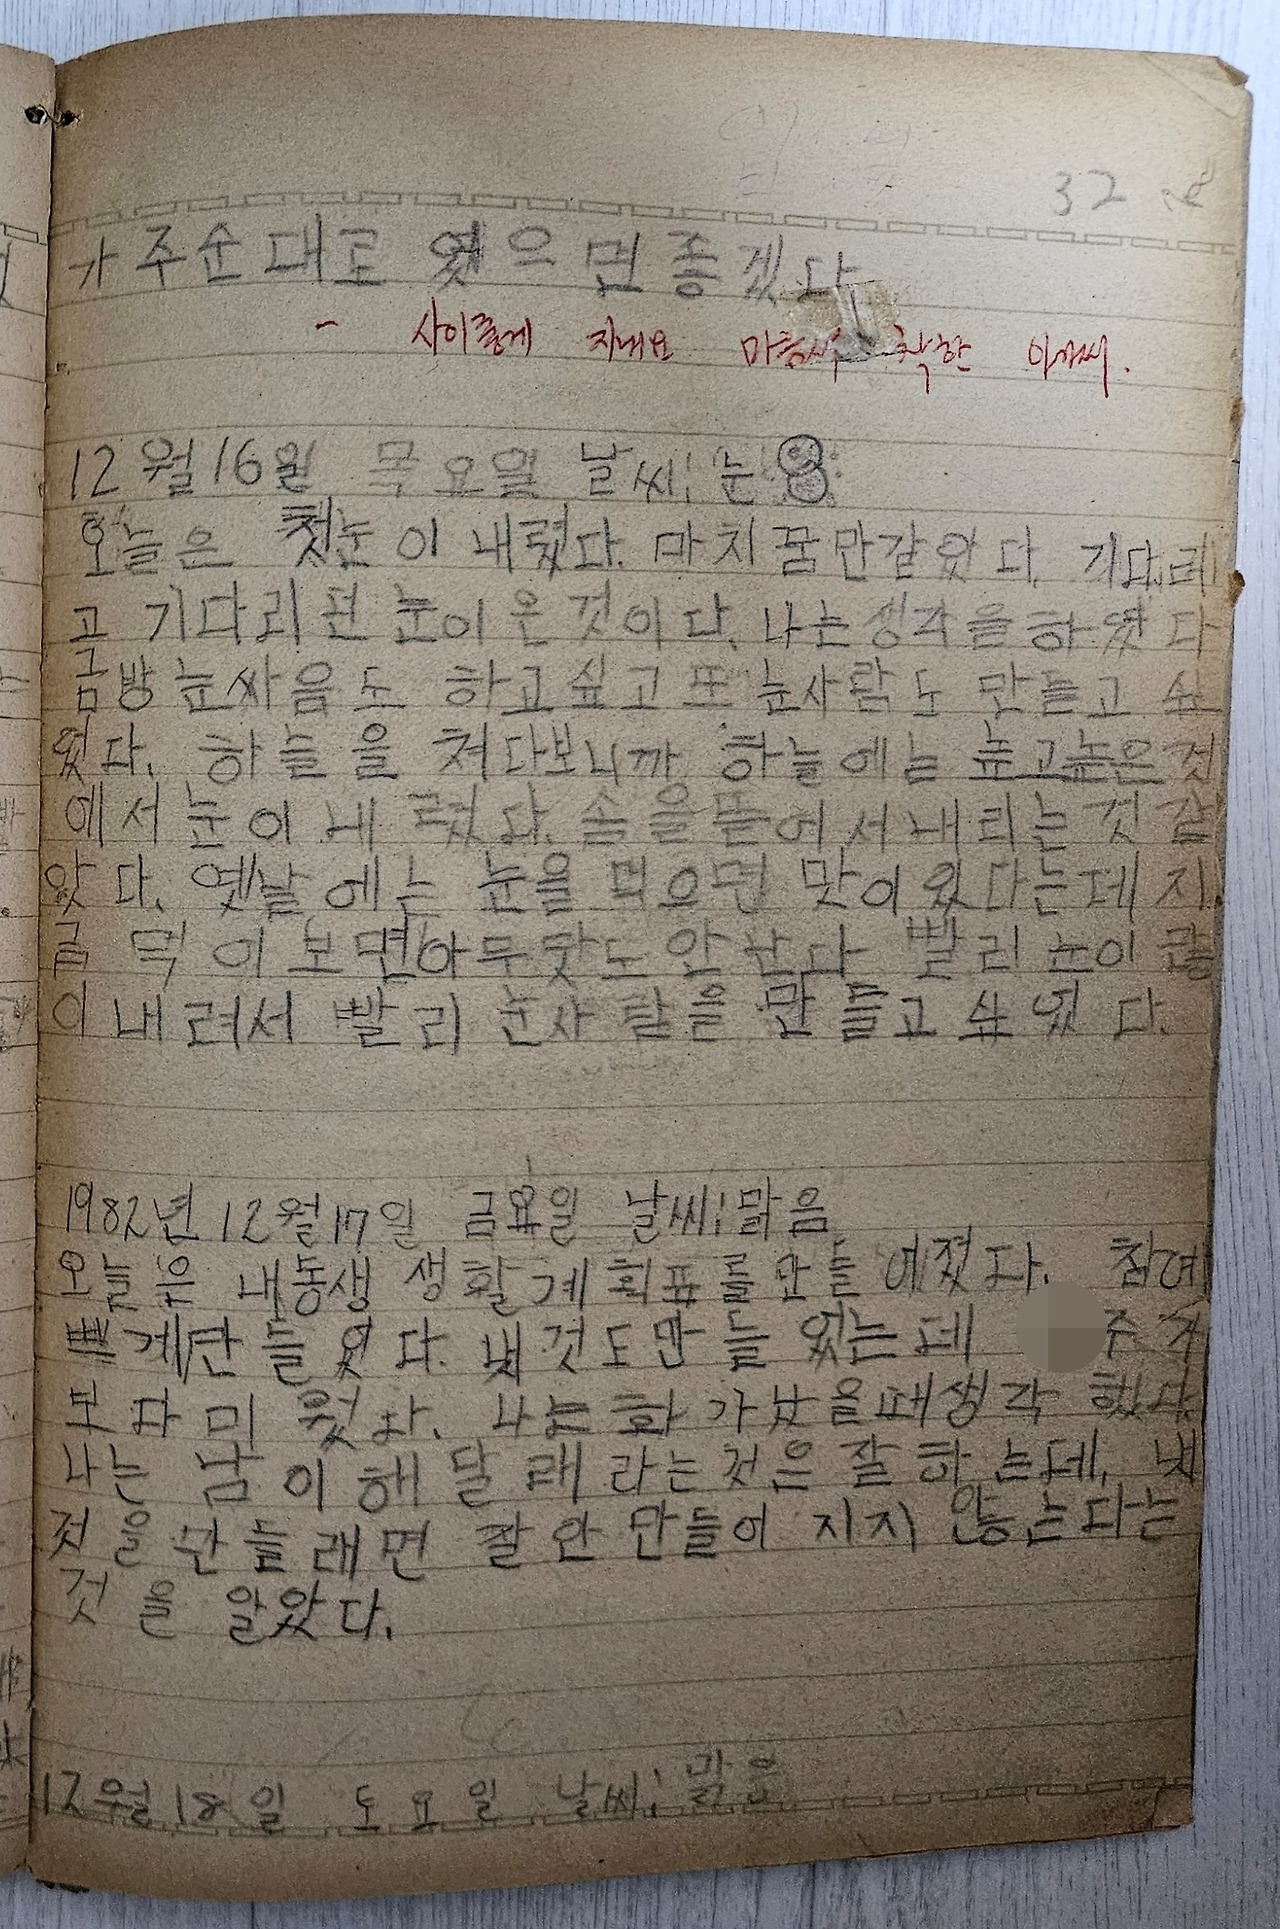 32
가 주순대로 였으면 좋겠다
- 사이좋게 지내요 착한
12월 16일 목요일 날씨; 눈
오늘은 첫눈이 내렸다. 마치 꿈만같았다. 기다리
고 기다리던 눈이 온 것이다. 나는 생각을 하였다
금방 눈싸움도 하고싶고 또 눈사람도 만들고 싶
었다. 하늘을 쳐다보니까 하늘에는 높고높은 것
에서 눈이 내렸다. 솜을 뜯어서 내리는 것 같
았다. 옛날에는 눈을 먹으면 맛이 있다는데 지
금 먹어보면 아무맛도 안난다 빨리 눈이 많
이 내려서 빨리 눈사람을 만들고 싶었다.
1982년 12월 17일 금요일 날씨; 맑음
오늘은 내동생 생활계획표를 만들어줬다. 참예
쁘게 만들었다. 내것도 만들었는데
보다 미웠다. 나는 화가 났을때 생각했다
나는 남이 해달래라는 것은 잘하는데, 내
것을 만들래면 잘 안 만들어 지지 않는다는
것을 알았다.
12월 18일 토요일 날씨; 맑음